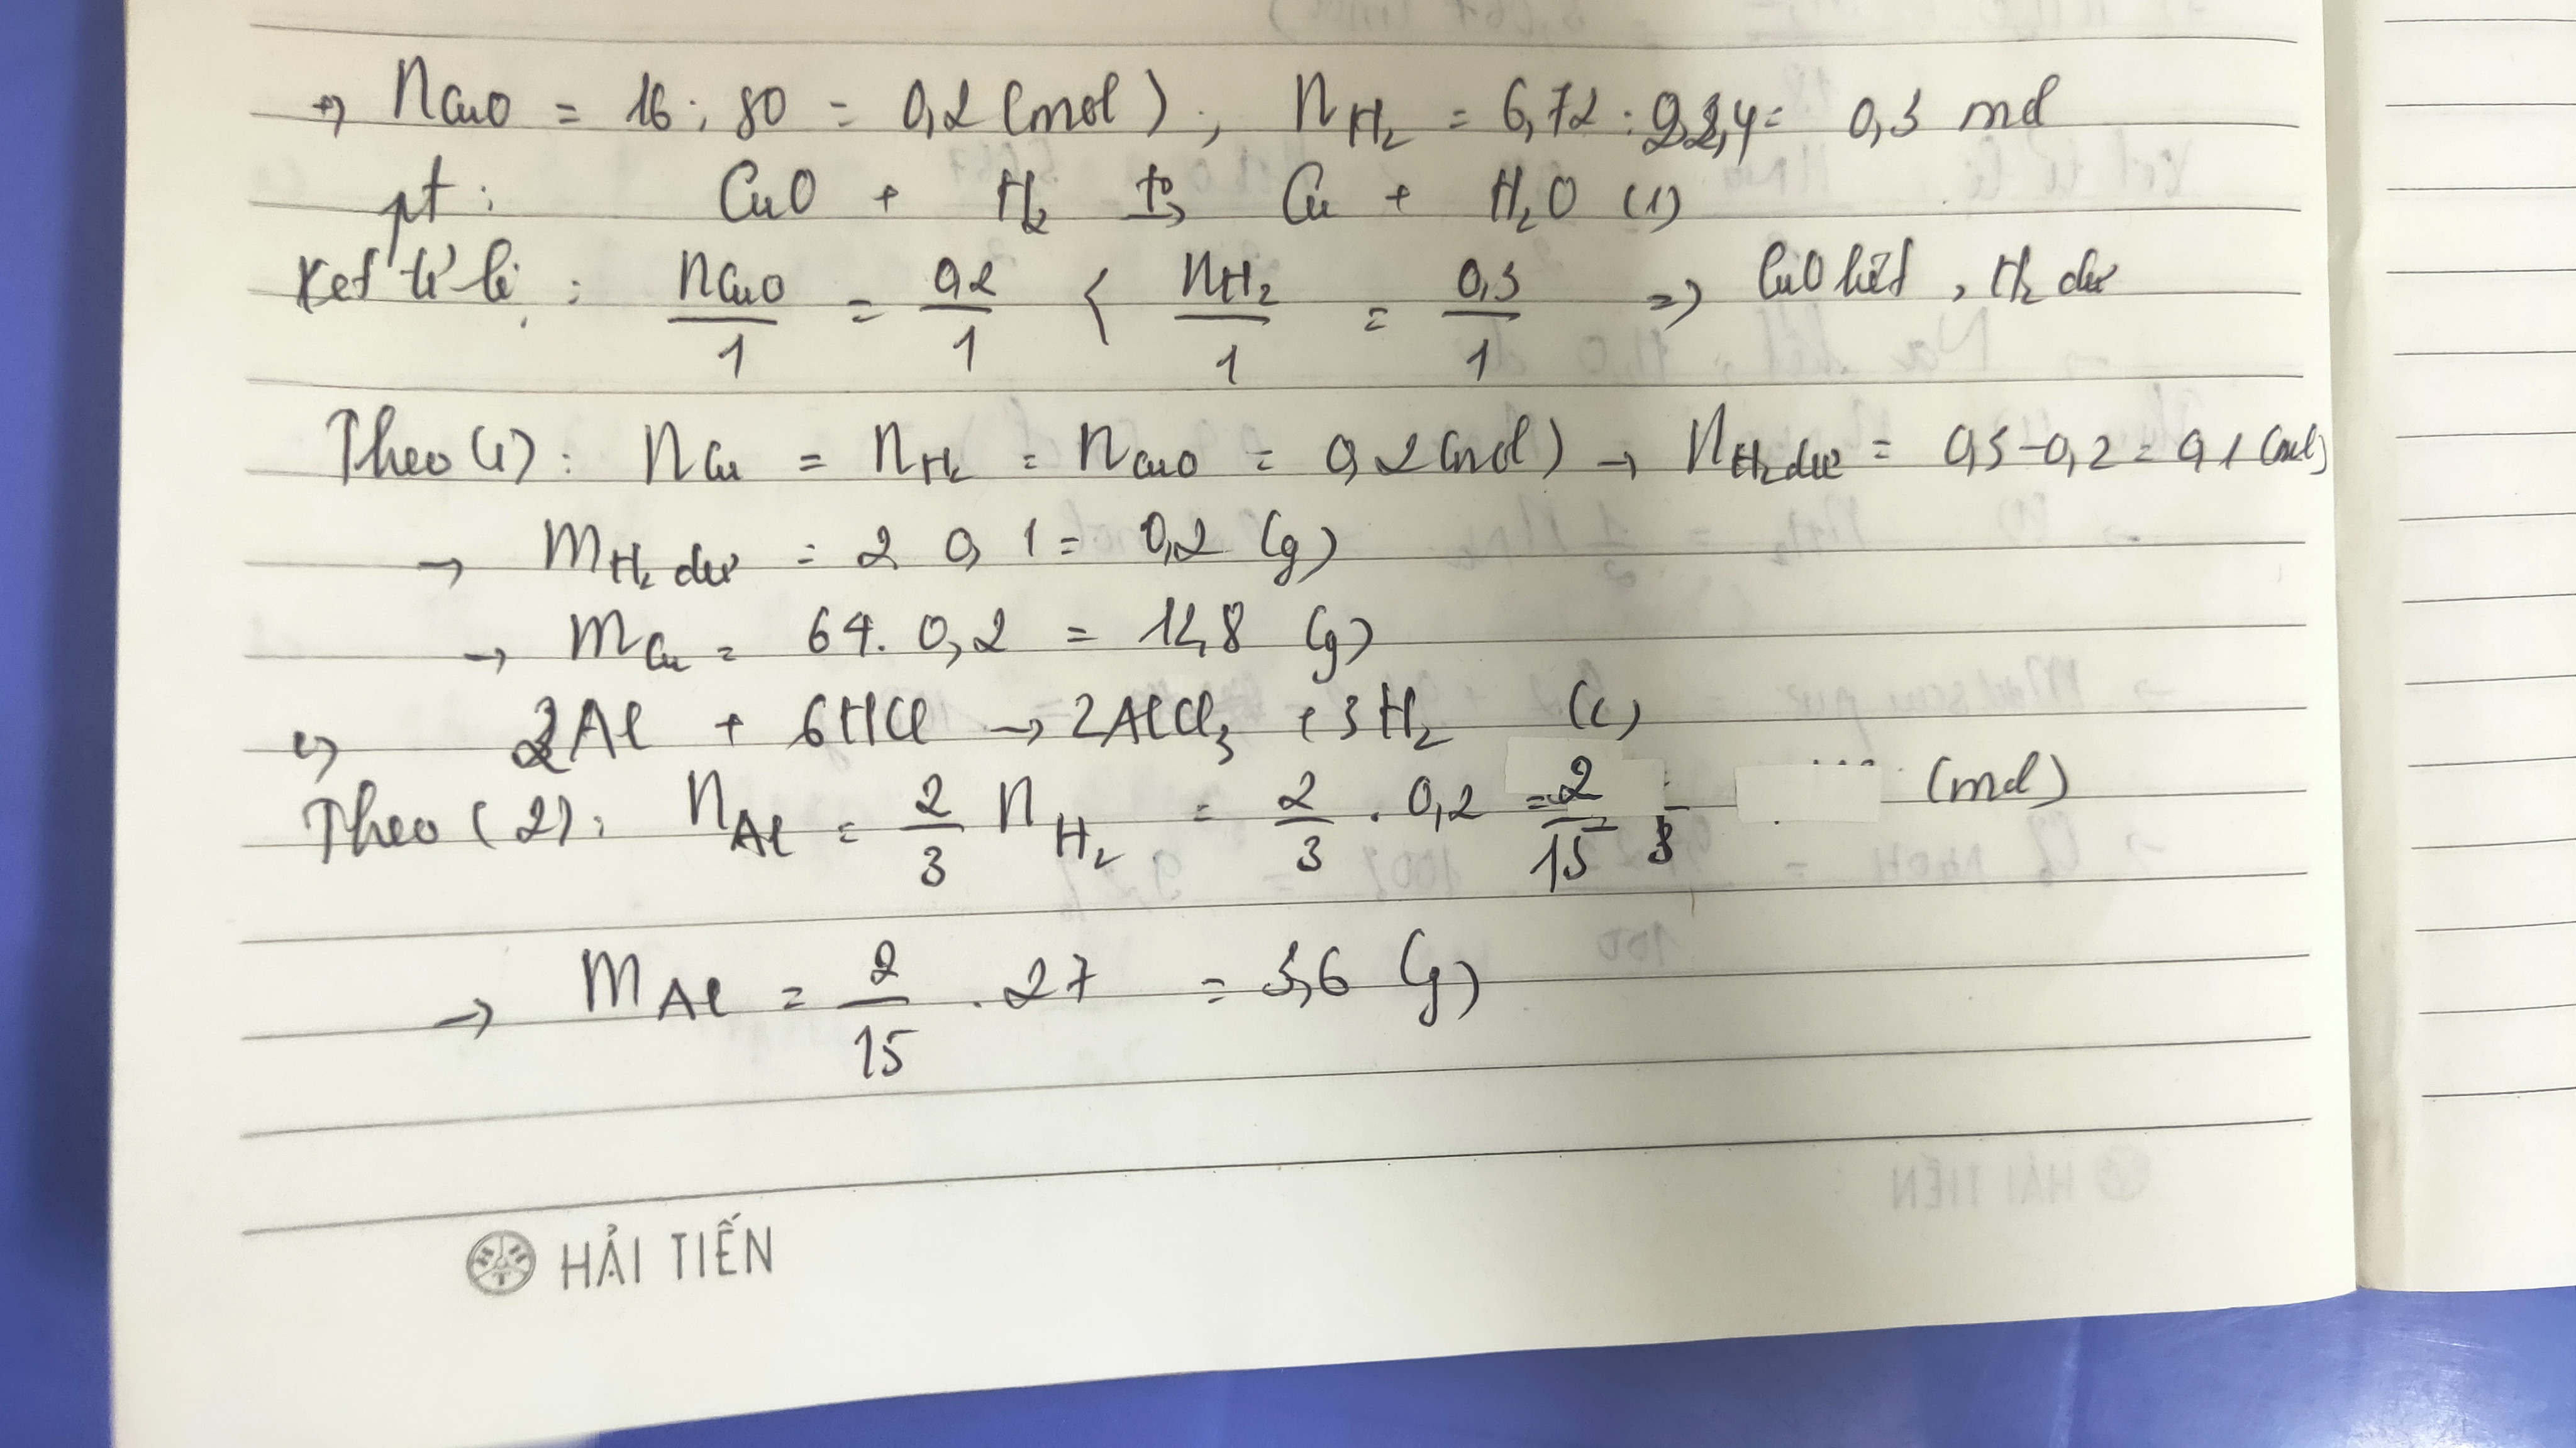 => nCuO = 16 : 80 = 0,2 (mol) ; nH₂ = 6,72 : 22,4 = 0,3 mol
pt : CuO + H₂ t°→ Cu + H₂O (1)
Xét tỉ lệ : nCuO/1 = 0,2/1 < nH₂/1 = 0,3/1 => CuO hết , H₂ dư
Theo (1) : nCu = nH₂ = nCuO = 0,2 (mol) → nH₂ dư = 0,3 - 0,2 = 0,1 (mol)
→ mH₂ dư = 2 0,1 = 0,2 (g)
→ mCu = 64 . 0,2 = 12,8 (g)
c) 2Al + 6HCl → 2AlCl₃ + 3H₂ (2)
Theo (2) : nAl = 2/3 nH₂ = 2/3 . 0,2 = 2/15 (mol)
→ mAl = 2/15 . 27 = 3,6 (g)
HẢI TIẾN